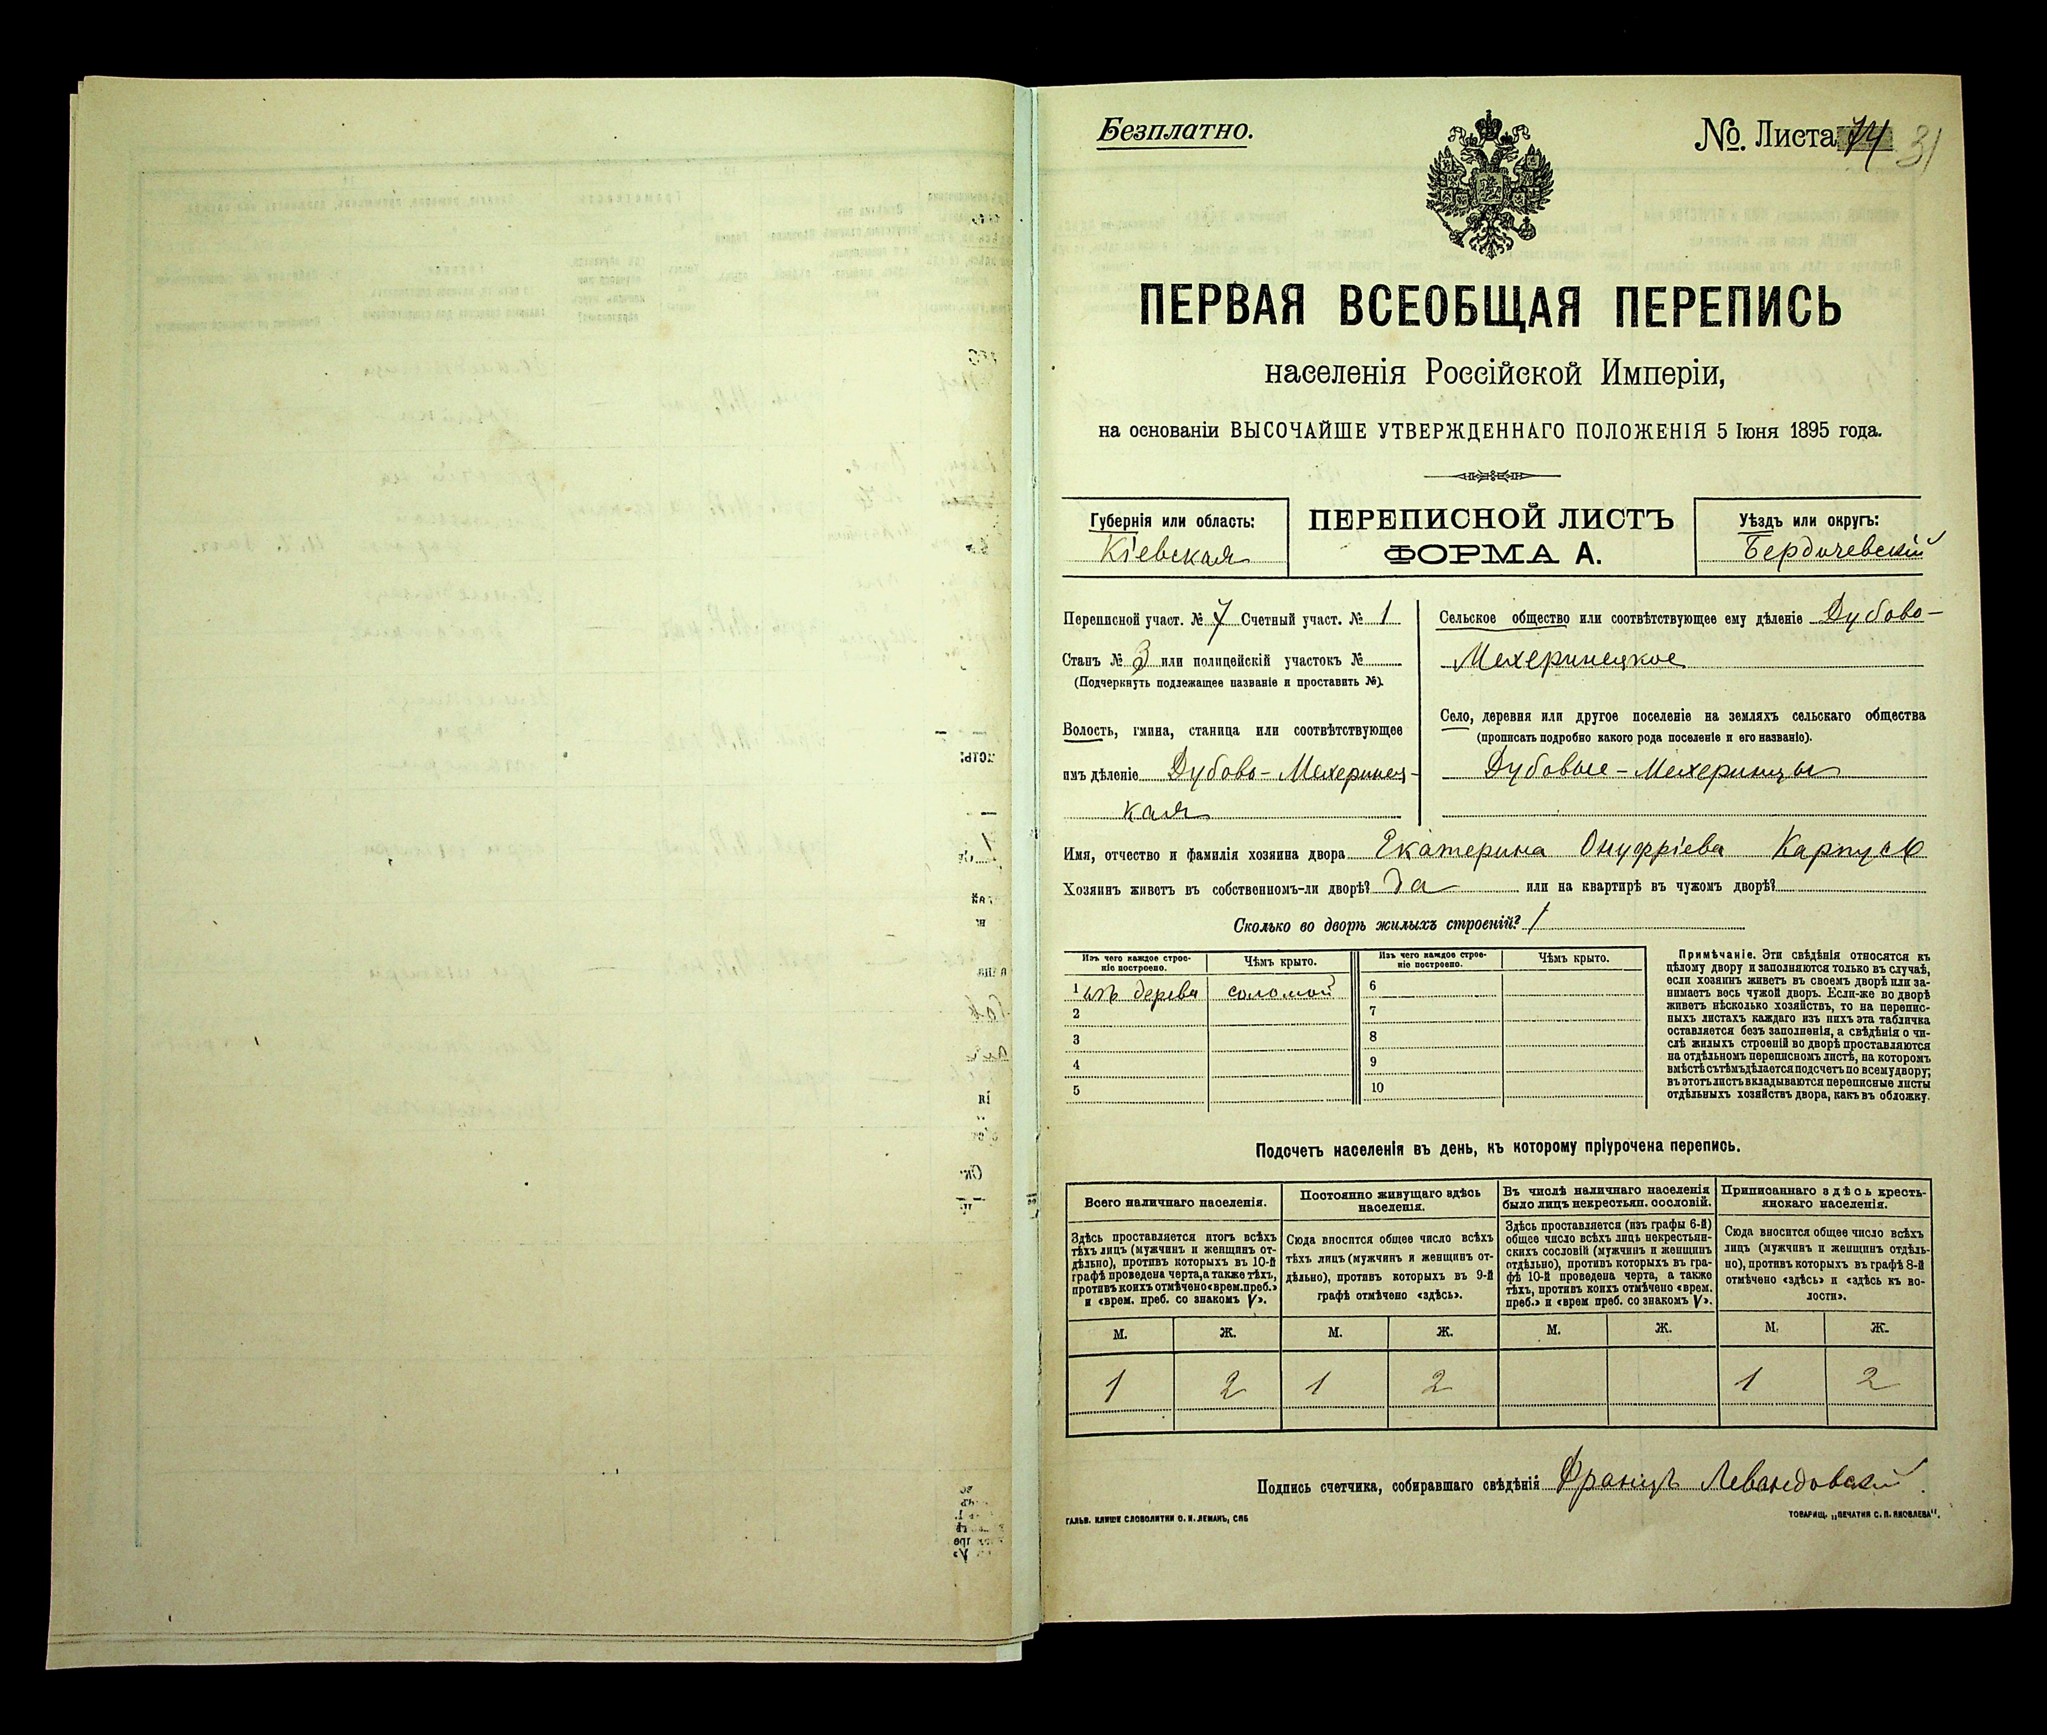 Безплатно.
№. Листа 74 31
ПЕРВАЯ ВСЕОБЩАЯ ПЕРЕПИСЬ
населенія Россійской Имперіи,
на основаніи ВЫСОЧАЙШЕ УТВЕРЖДЕННАГО ПОЛОЖЕНІЯ 5 Іюня 1895 года.
Губернія или область:
Кіевская
ПЕРЕПИСНОЙ ЛИСТЪ
ФОРМА А.
Уѣздъ или округъ:
Бердичевскій
Переписной участ. № 7 Счетный участ. № 1
Станъ № 3 или полицейскій участокъ №
(Подчеркнуть подлежащее названіе и проставить №).
Волость, гмина, станица или соотвѣтствующее
имъ дѣленіе Дубово-Мехеринец-
кая
Сельское общество или соотвѣтствующее ему дѣленіе Дубово-
Мехеринецкое
Село, деревня или другое поселеніе на земляхъ сельскаго общества
(прописать подробно какого рода поселеніе и его названіе).
Дубовые-Мехеринцы
Имя, отчество и фамилія хозяина двора Екатерина Онуфріева Карпусь
Хозяинъ живетъ въ собственномъ-ли дворѣ? Да или на квартирѣ въ чужомъ дворѣ?
Сколько во дворѣ жилыхъ строеній? 1
Изъ чего каждое строе-
ніе построено.
Чѣмъ крыто.
Изъ чего каждое строе-
ніе построено.
Чѣмъ крыто.
1 изъ дерева соломой 6
2 7
3 8
4 9
5 10
Примѣчаніе. Эти свѣдѣнія относятся къ
цѣлому двору и заполняются только въ случаѣ,
если хозяинъ живетъ въ своемъ дворѣ или за-
нимаетъ весь чужой дворъ. Если-же во дворѣ
живетъ нѣсколько хозяйствъ, то на перепис-
ныхъ листахъ каждаго изъ нихъ эта табличка
оставляется безъ заполненія, а свѣдѣнія о чи-
слѣ жилыхъ строеній во дворѣ проставляются
на отдѣльномъ переписномъ листѣ, на которомъ
вмѣстѣ съ тѣмъ дѣлается подсчетъ по всему двору;
въ этотъ листъ вкладываются переписные листы
отдѣльныхъ хозяйствъ двора, какъ въ обложку.
Подсчетъ населенія въ день, къ которому пріурочена перепись.
Всего наличнаго населенія.
Здѣсь проставляется итогъ всѣхъ
тѣхъ лицъ (мужчинъ и женщинъ от-
дѣльно), противъ которыхъ въ 10-й
графѣ проведена черта, а также тѣхъ,
противъ коихъ отмѣчено «врем. преб.»
и «врем. преб. со знакомъ V».
Постоянно живущаго здѣсь
населенія.
Сюда вносится общее число всѣхъ
тѣхъ лицъ (мужчинъ и женщинъ от-
дѣльно), противъ которыхъ въ 9-й
графѣ отмѣчено «здѣсь».
Въ числѣ наличнаго населенія
было лицъ некрестьян. сословій.
Здѣсь проставляется (изъ графы 6-й)
общее число всѣхъ лицъ некрестьян-
скихъ сословій (мужчинъ и женщинъ
отдѣльно), противъ которыхъ въ гра-
фѣ 10-й проведена черта, а также
тѣхъ, противъ коихъ отмѣчено «врем.
преб.» и «врем преб. со знакомъ V».
Приписаннаго здѣсь кресть-
янскаго населенія.
Сюда вносится общее число всѣхъ
лицъ (мужчинъ и женщинъ отдѣль-
но), противъ которыхъ въ графѣ 8-й
отмѣчено «здѣсь» и «здѣсь къ во-
лости».
М. Ж. М. Ж. М. Ж. М. Ж.
1 2 1 2 1 2
Подпись счетчика, собиравшаго свѣдѣнія Францъ Левандовскій.
ГАЛЬВ. КЛИШЕ СЛОВОЛИТНИ О. И. ЛЕМАНЪ, СПБ
ТОВАРИЩ. „ПЕЧАТНЯ С. П. ЯКОВЛЕВА".